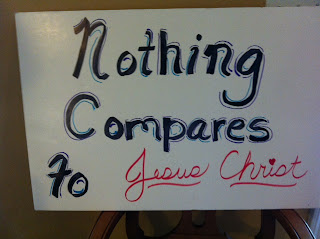 Nothing
Compares
To Jesus Christ